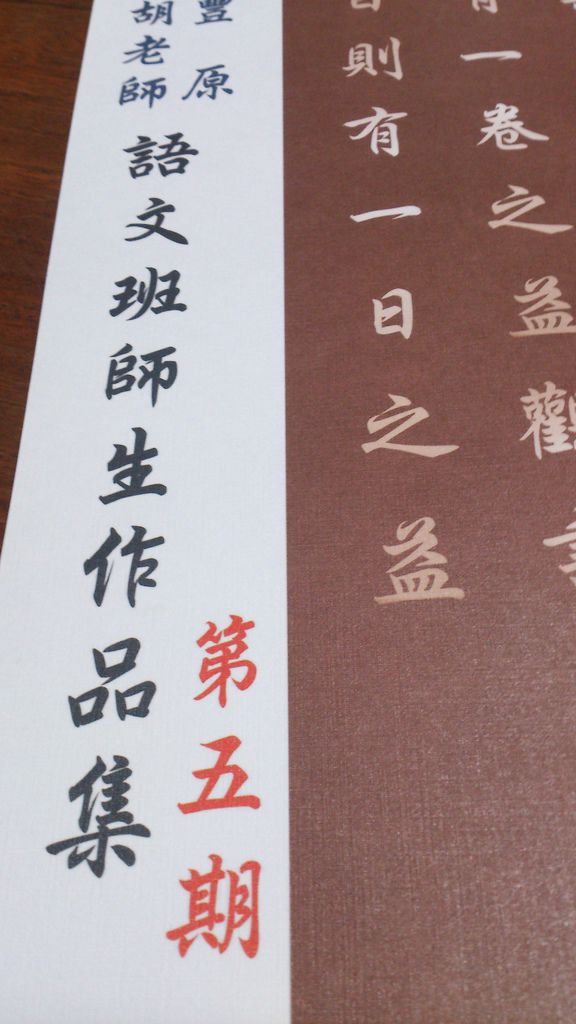 有一卷之益觀
日則有一日之益
豐原
胡老師
語文班師生作品集
第五期